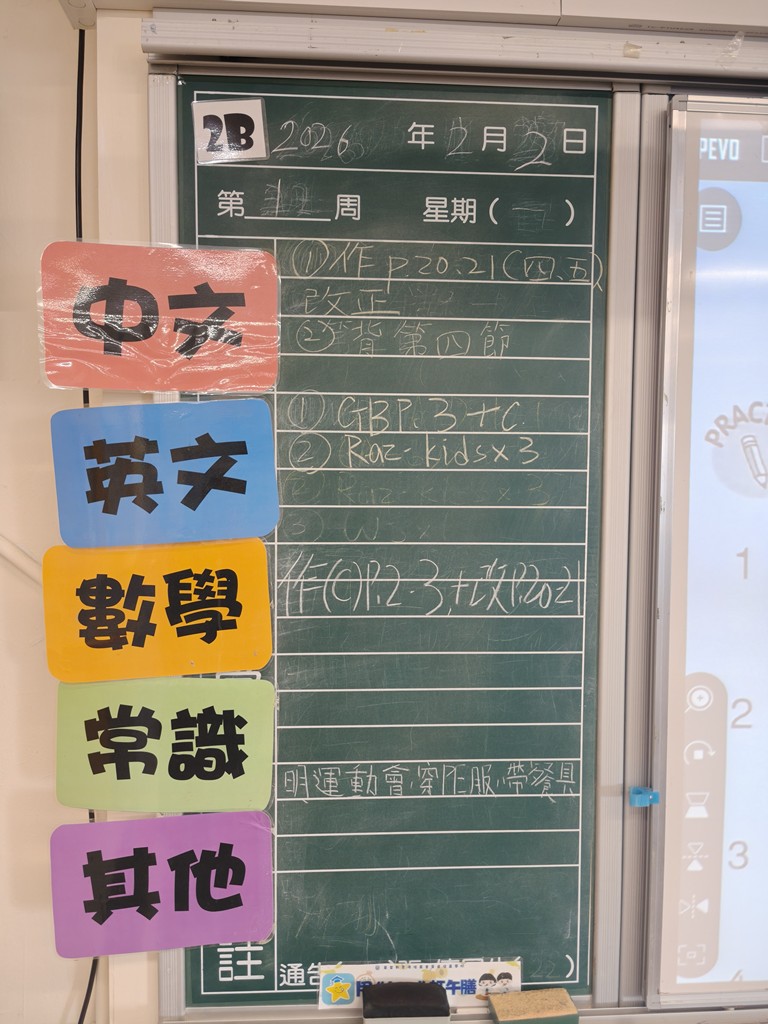 2B 2026 年 2 月 2 日
第 1 周 星期( )
中文
① 作 p.20.21(四、五)
改正
② 背第四節
英文
① GBP.3+C
② Raz-kids x 3
② Raz-kids x 3
③ WS x
數學
作(C)P.2-3,+改P.2021
常識
其他
明運動會,穿PE服,帶餐具
註
通告( 22 )
午膳
PEVO
PRAC
1
2
3
4